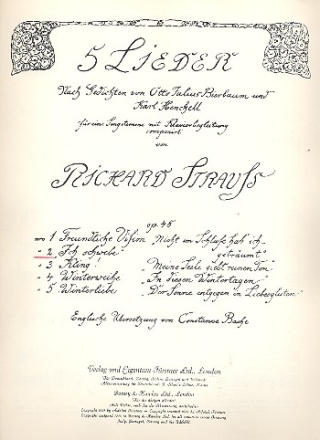 5 LIEDER
Nach Gedichten von Otto Julius Bierbaum und
Karl Henckell
für eine Singstimme mit Klavierbegleitung
componirt
von
RICHARD STRAUSS
op. 48
No 1 Freundliche Vision „Nicht im Schlafe hab' ich
geträumt"
" 2 Ich schwebe
" 3 Kling! „Meine Seele giebt reinen Ton"
" 4 Winterweihe „In diesen Wintertagen"
" 5 Winterliebe „Der Sonne entgegen in Liebesgluten"
Englische Übersetzung von Constance Bache
Verlag und Eigentum Fürstner Ltd., London
Boosey & Hawkes Ltd., London